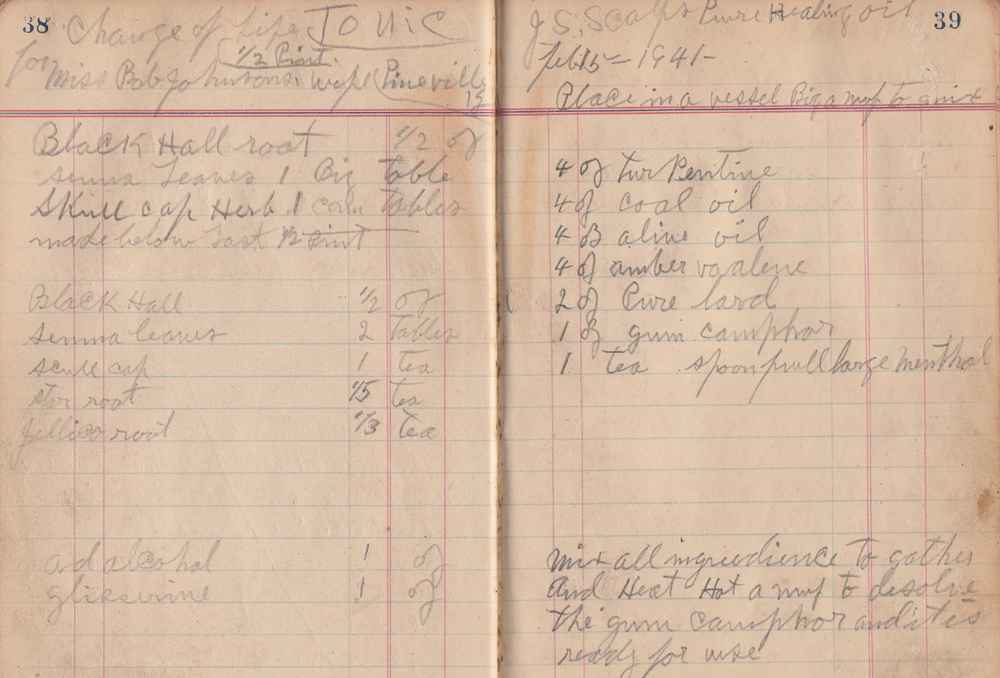 38
Change of Life Tonic
1/2 Pint.
for Miss Bob Johnsons wife Pineville
15
Black Hall root 1/2 oz
senna Leaves 1 Big Table
Skull cap Herb 1 Table
made below Last 1/2 Pint
Black Hall 1/2 oz
senna leaves 2 Tables
scull cap 1 tea
star root 1/5 tea
jellico root 1/3 tea
ad alcohol 1 oz
glisserine 1 oz
39
J, S, Scalfs Pure Healing oil
Feb 15 - 1941 -
Place in a vessel Big anuf to mix
4 oz tur Pentine
4 oz coal oil
4 oz alive oil
4 oz amber vaalene
2 oz Pure lard
1 oz gum camphor
1 tea spoonfull large menthol
mix all ingredience to gather
And Heat Hot anuf to desolve
the gum camphor and it is
ready for use